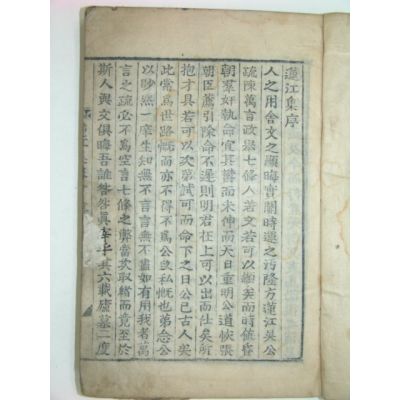 蓮江集序
人之用舍文之顯晦實關時運之污隆方蓮江吳公
疏陳萬言政擧七條人若文若可以有爲矣而時値昏
朝羣奸執命宜其鬱而未伸而天日重明公道恢張
朝臣薦引除命不遲則明君在上可以出而仕矣所
抱才具若可以次第試可而命下之日公已古人矣
此常爲世路慨而亦不得不爲公良私慨也弟念公
以眇然一庶生知無不言言無不盡如有用我者萬
言之疏必不爲空言七條之弊當次取緖而竟至於
斯人與文俱晦吾誰咎咎其六載廬墓二度